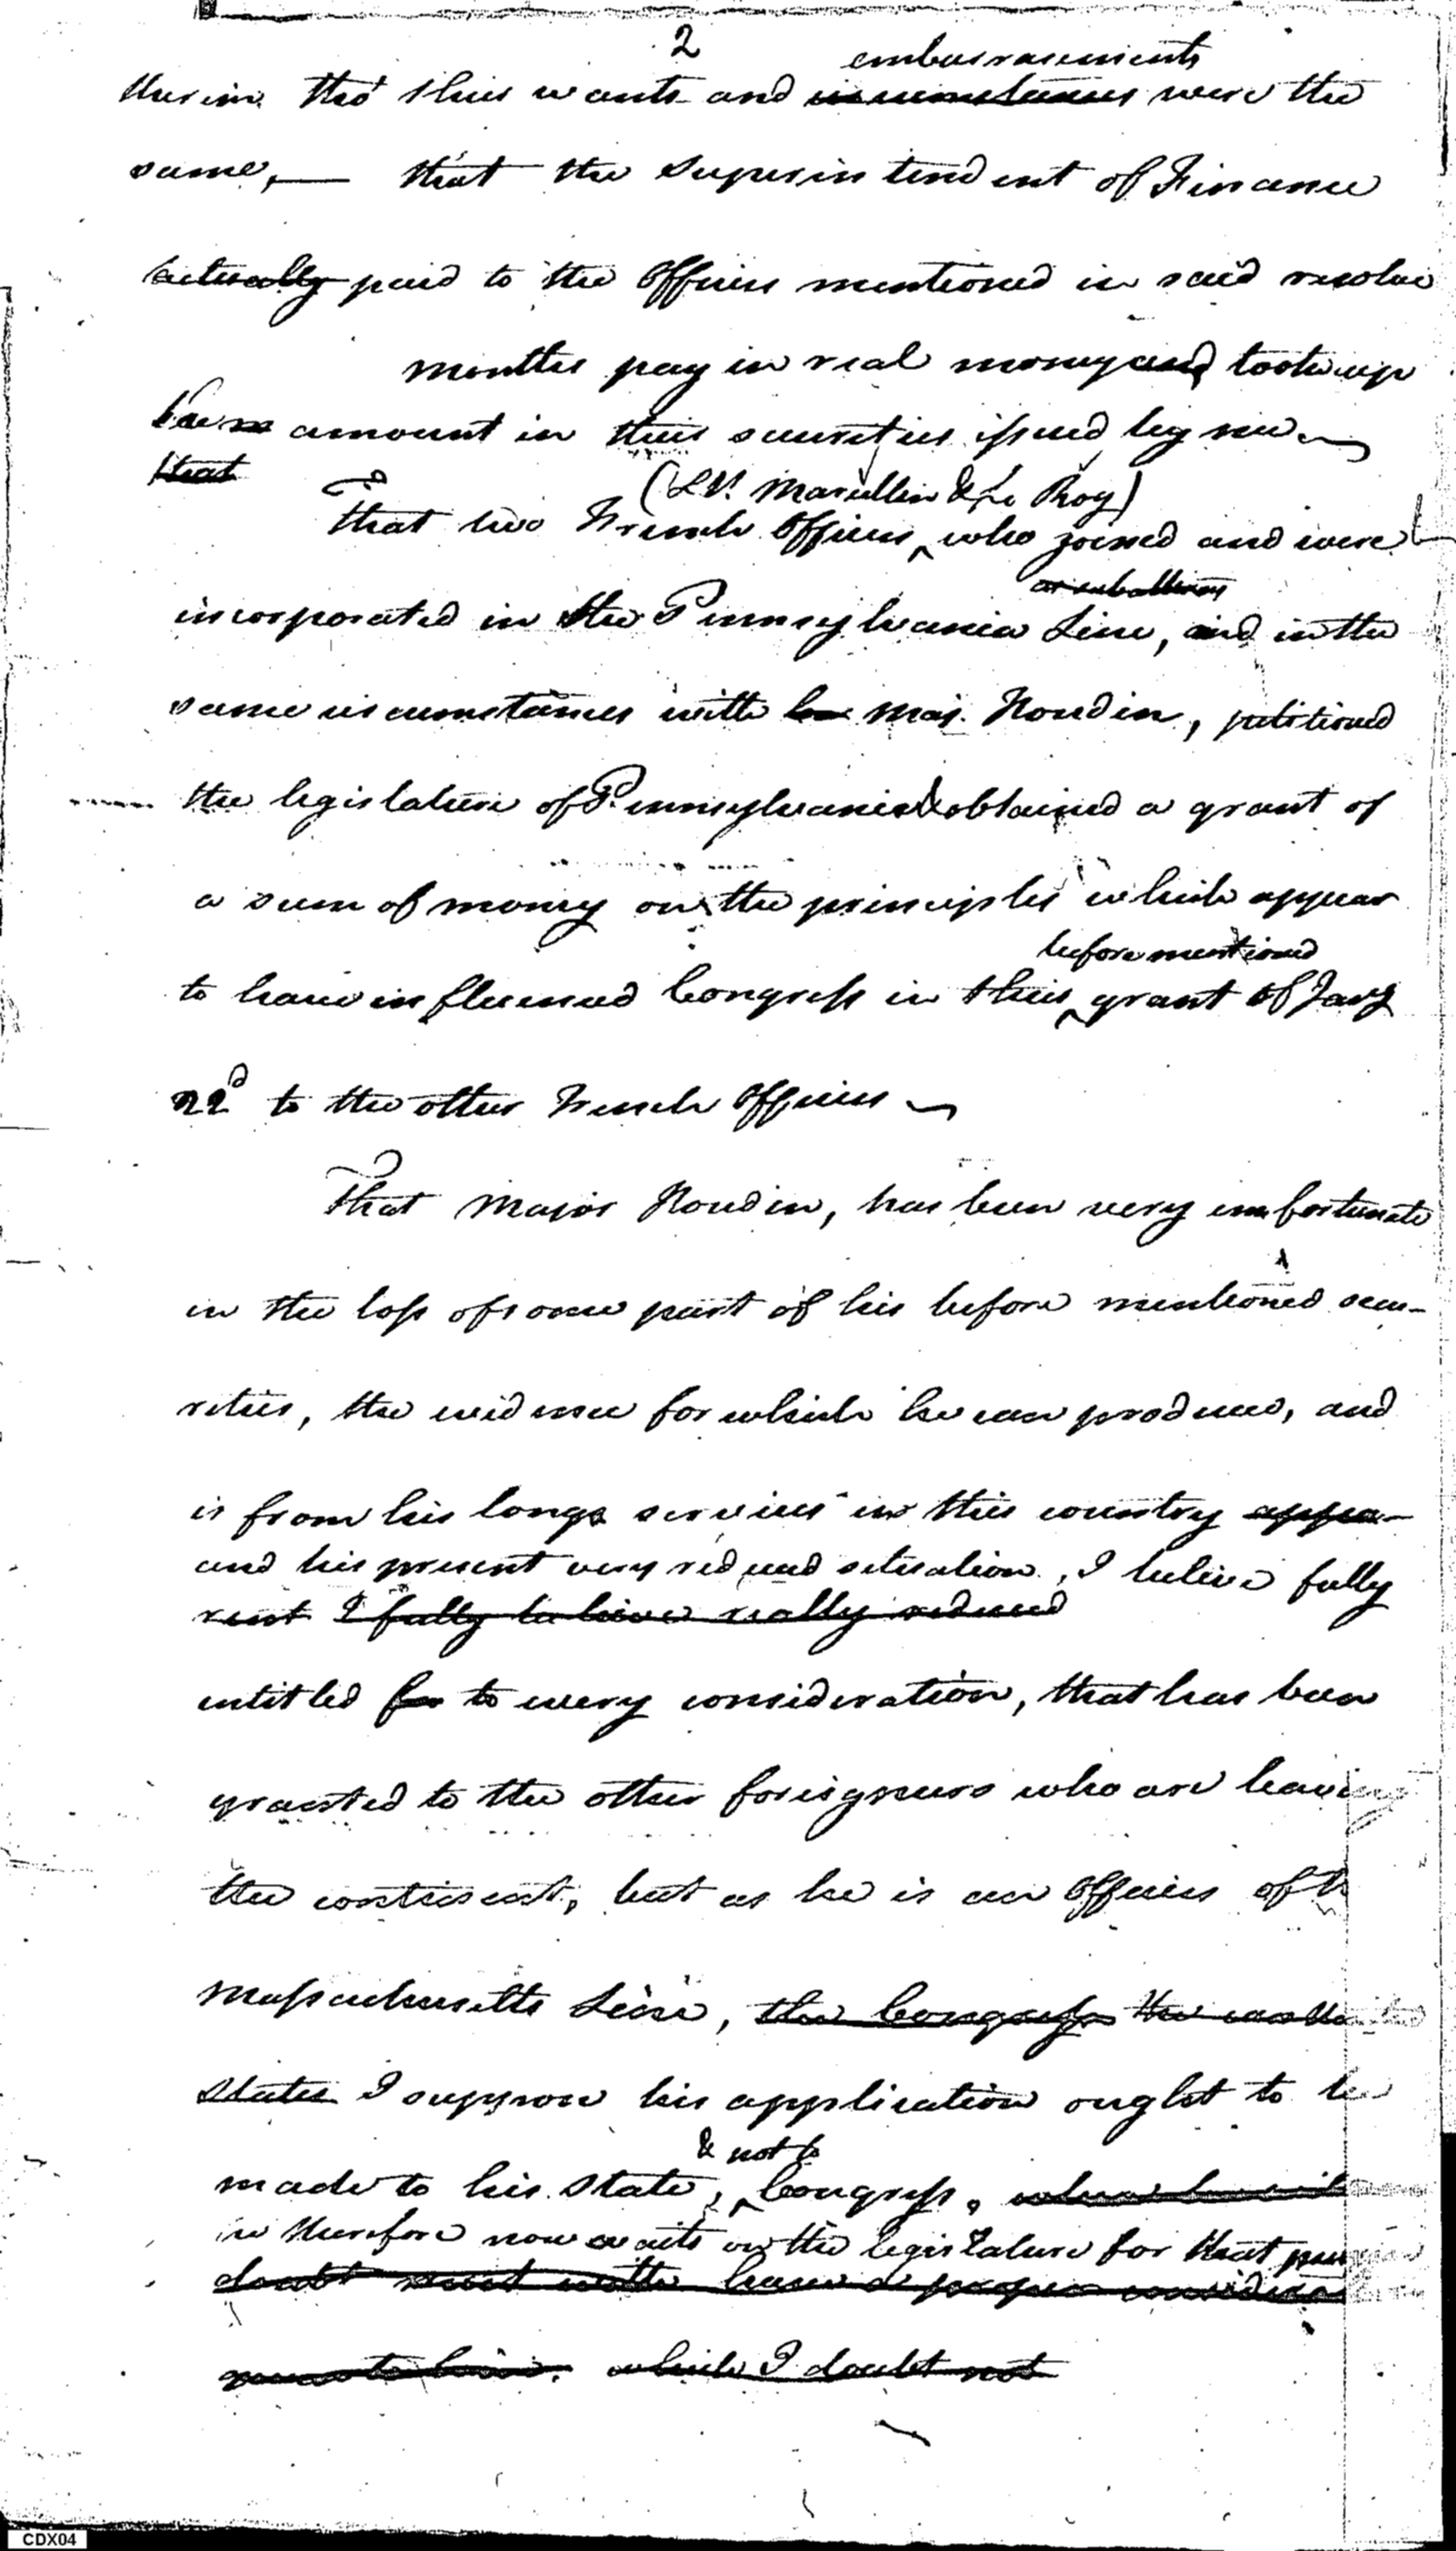 2
embarrasements
therein tho' their wants and circumstances were the
same, — that the Superintendent of Finance
actually paid to the Officers mentioned in said resolve
months pay in real money and took up
same amount in their securities issued by me
that
(Lts. Marcellin & Le Roy)
That two French Officers who joined and were
or subalterns
incorporated in the Pennsylvania Line, and in the
same circumstances with Maj. Noudin, petitioned
the legislature of Pennsylvania & obtained a grant of
a sum of money on the principles which appear
before mentioned
to have influenced Congress in their grant of Jany
22d to the other French Officers
That Major Noudin, has been very unfortunate
in the loss of some part of his before mentioned secu-
rities, the evidence for which he can produce, and
is from his long services in this country appa-
and his present very reduced situation, I believe fully
rent I fully believe really reduced
entitled for to every consideration, that has been
granted to the other foreigners who are leaving
the continent, but as he is an Officer of th
Massachusetts Line, the Congress the
states I suppose his application ought to be
& not to
made to his state, Congress,
he therefore now waits on the legislature for that
doubt have a proper
him. which I doubt not
CDX04